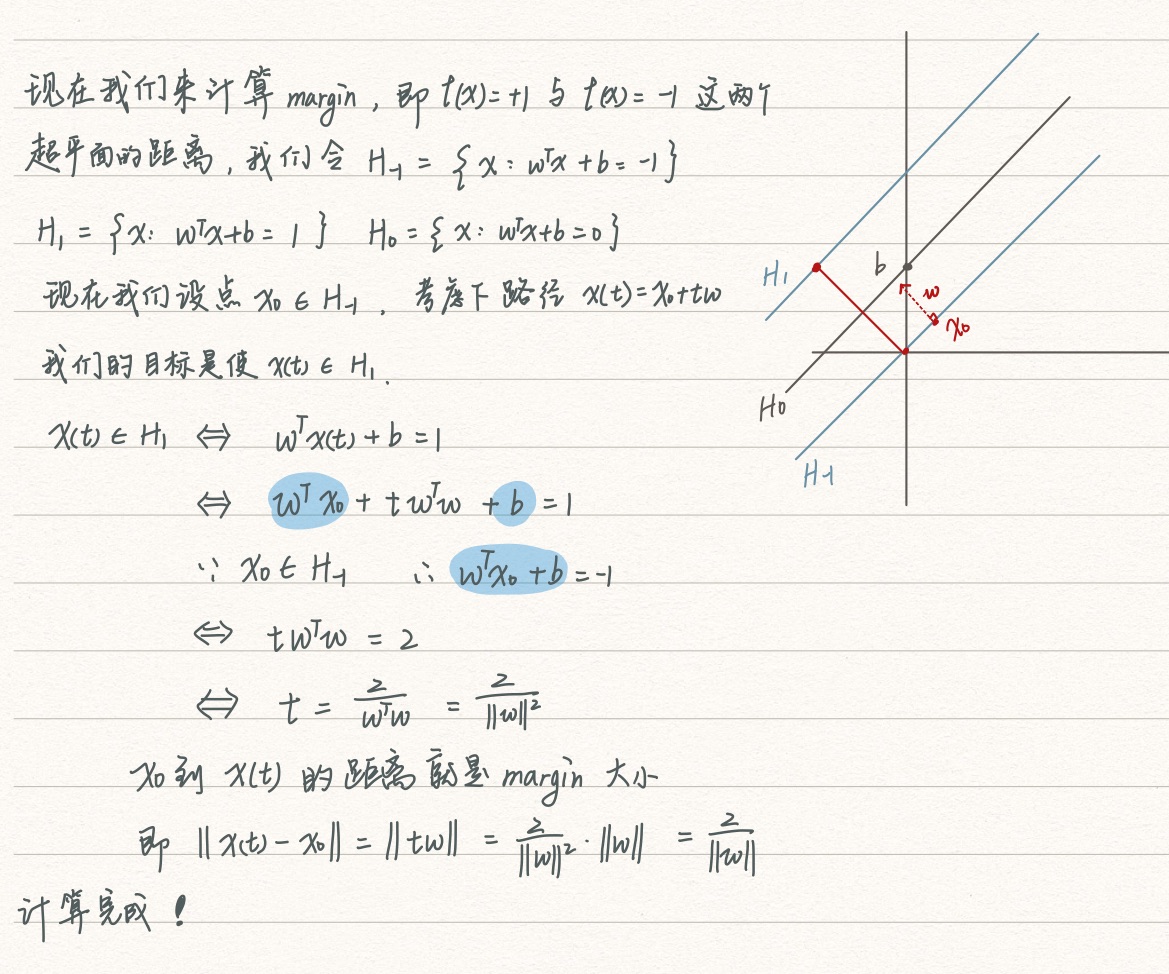 现在我们来计算 margin, 即 t(x)=+1 与 t(x)=-1 这两个
超平面的距离, 我们令 H₋₁ = { x : wᵀx + b = -1 }
H₁ = { x : wᵀx+b = 1 } H₀ = { x : wᵀx+b=0 }
现在我们设点 x₀ ∈ H₋₁ , 考虑下路径 x(t)=x₀+tw
我们的目标是使 x(t) ∈ H₁ .
x(t) ∈ H₁ ⇔ wᵀx(t) + b = 1
⇔ wᵀx₀ + t wᵀw + b = 1
∵ x₀ ∈ H₋₁ ∴ wᵀx₀ + b = -1
⇔ t wᵀw = 2
⇔ t = 2/(wᵀw) = 2/||w||²
x₀ 到 x(t) 的距离就是 margin 大小
即 || x(t) - x₀ || = || tw || = 2/||w||² · ||w|| = 2/||w||
计算完成!
H₁
b
w
x₀
H₀
H₋₁